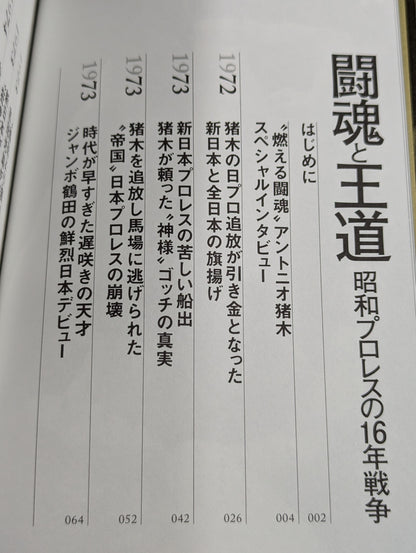 闘魂と王道 昭和プロレスの16年戦争
はじめに 002
“燃える闘魂”アントニオ猪木
スペシャルインタビュー 004
1972
猪木の日プロ追放が引き金となった
新日本と全日本の旗揚げ 026
1973
新日本プロレスの苦しい船出
猪木が頼った“神様”ゴッチの真実 042
1973
猪木を追放し馬場に逃げられた
“帝国”日本プロレスの崩壊 052
1973
時代が早すぎた遅咲きの天才
ジャンボ鶴田の鮮烈日本デビュー 064